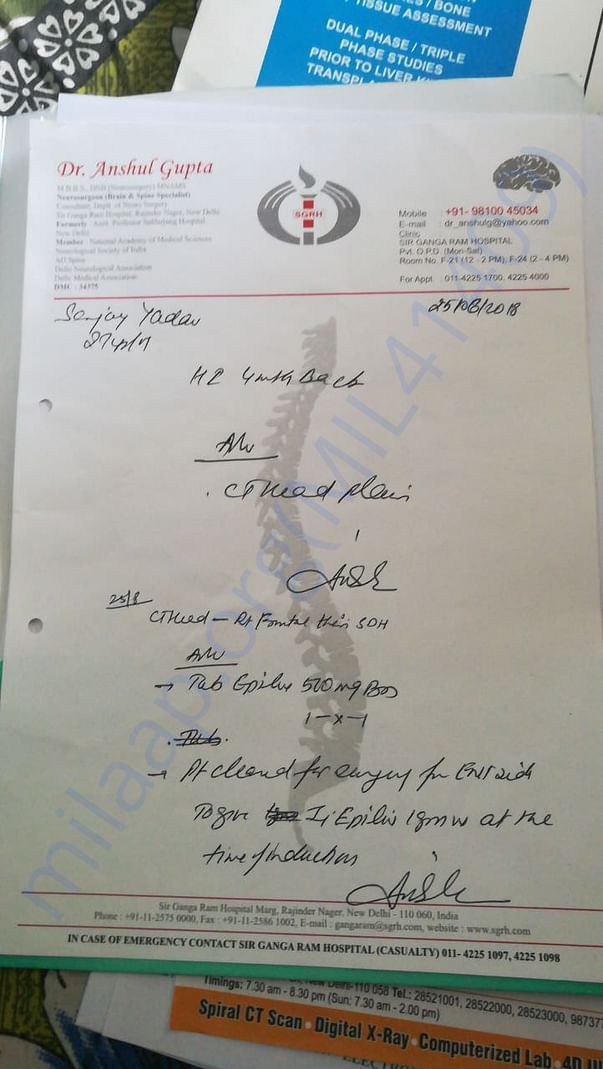 / BONE
TISSUE ASSESSMENT
DUAL PHASE / TRIPLE
PHASE STUDIES
PRIOR TO LIVER
TRANSPL
Dr. Anshul Gupta
M.B.B.S., DNB (Neurosurgery) MNAMS
Neurosurgeon (Brain & Spine Specialist)
Consultant, Deptt. of Neuro Surgery
Sir Ganga Ram Hospital, Rajinder Nager, New Delhi
Formerly : Asstt. Professor Safdarjung Hospital
New Delhi
Member : National Academy of Medical Sciences
Neurological Society of India
AO Spine
Delhi Neurological Association
Delhi Medical Association
DMC : 34375
SGRH
Mobile : +91- 98100 45034
E-mail : dr_anshulg@yahoo.com
Clinic
SIR GANGA RAM HOSPITAL
Pvt. O.P.D. (Mon-Sat)
Room No. F-21 (12 - 2 PM), F-24 (2 - 4 PM)
For Appt. : 011-4225 1700, 4225 4000
Sanjay Yadav
27yr/M
25/08/2018
HI 4mth Back
Adv
. CT Head plain
25/8
CT Head – Rt Frontal thin SDH
Adv
→ Tab Epilex 500mg BD
1-x-1
→ Pt cleared for surgery for ENT side
To give Inj Epilex 1gm IV at the
time of induction
milaap.org(MIL41409)
Sir Ganga Ram Hospital Marg, Rajinder Nager, New Delhi - 110 060, India
Phone : +91-11-2575 0000, Fax : +91-11-2586 1002, E-mail : gangaram@sgrh.com, website : www.sgrh.com
IN CASE OF EMERGENCY CONTACT SIR GANGA RAM HOSPITAL (CASUALTY) 011- 4225 1097, 4225 1098
New Delhi-110 058 Tel.: 28521001, 28522000, 28523000, 98737
Timings: 7.30 am - 8.30 pm (Sun: 7.30 am - 2.00 pm)
Spiral CT Scan • Digital X-Ray • Computerized Lab • 4D